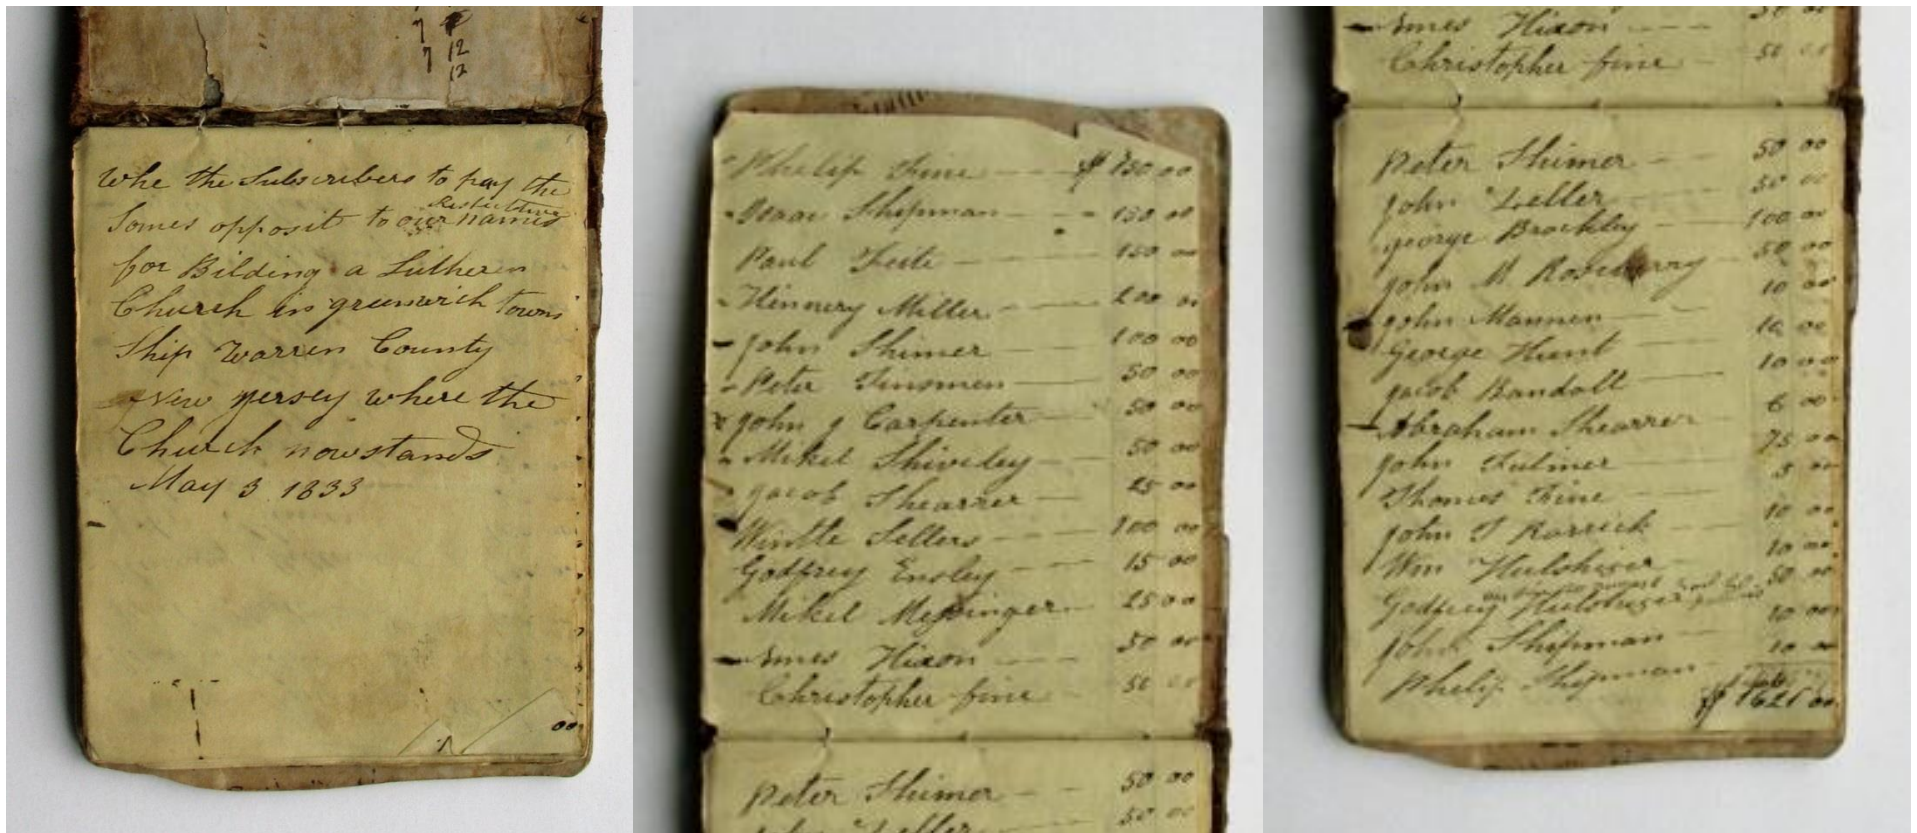 7
7 12
7 12
Whe the Subscribers to pay the
Somes opposit to our names
for Bilding a Lutheren
Church in greenwich towns
Ship Warren County
New Jersey where the
Church now stands
May 3 1833
00
Philip Fine $ 150 00
Isaac Shipman 150 00
Paul Teite 150
Hinnery Miller 200 00
John Shimer 100 00
Peter Sinsmen 50 00
John J Carpenter 50 00
Mikel Shiveley 50 00
Jacob Shearrer 25 00
Wintle Sellers 100 00
Godfrey Ensley 15 00
Mikel Messinger 25 00
Hixon 50 00
Christopher fine 50 00
Peter Shimer 50 00
John Zeller 50 00
Hixon 50 00
Christopher fine 50 00
Peter Shimer 50 00
John Zeller 50 00
george Brackley 100 00
John M Roseberry 50 00
John Mannen 10 00
George Hunt 10 00
Jacob Bandall 10 00
Abraham Shearrer 6 00
John Fulmer 75 00
Thomas Fine 5 00
John T Rarrick 10 00
Wm Hulshizer 10 00
Godfrey Hulshizer 50 00
John Shipman 10 00
Philip Shipman 10 00
$ 1621 00